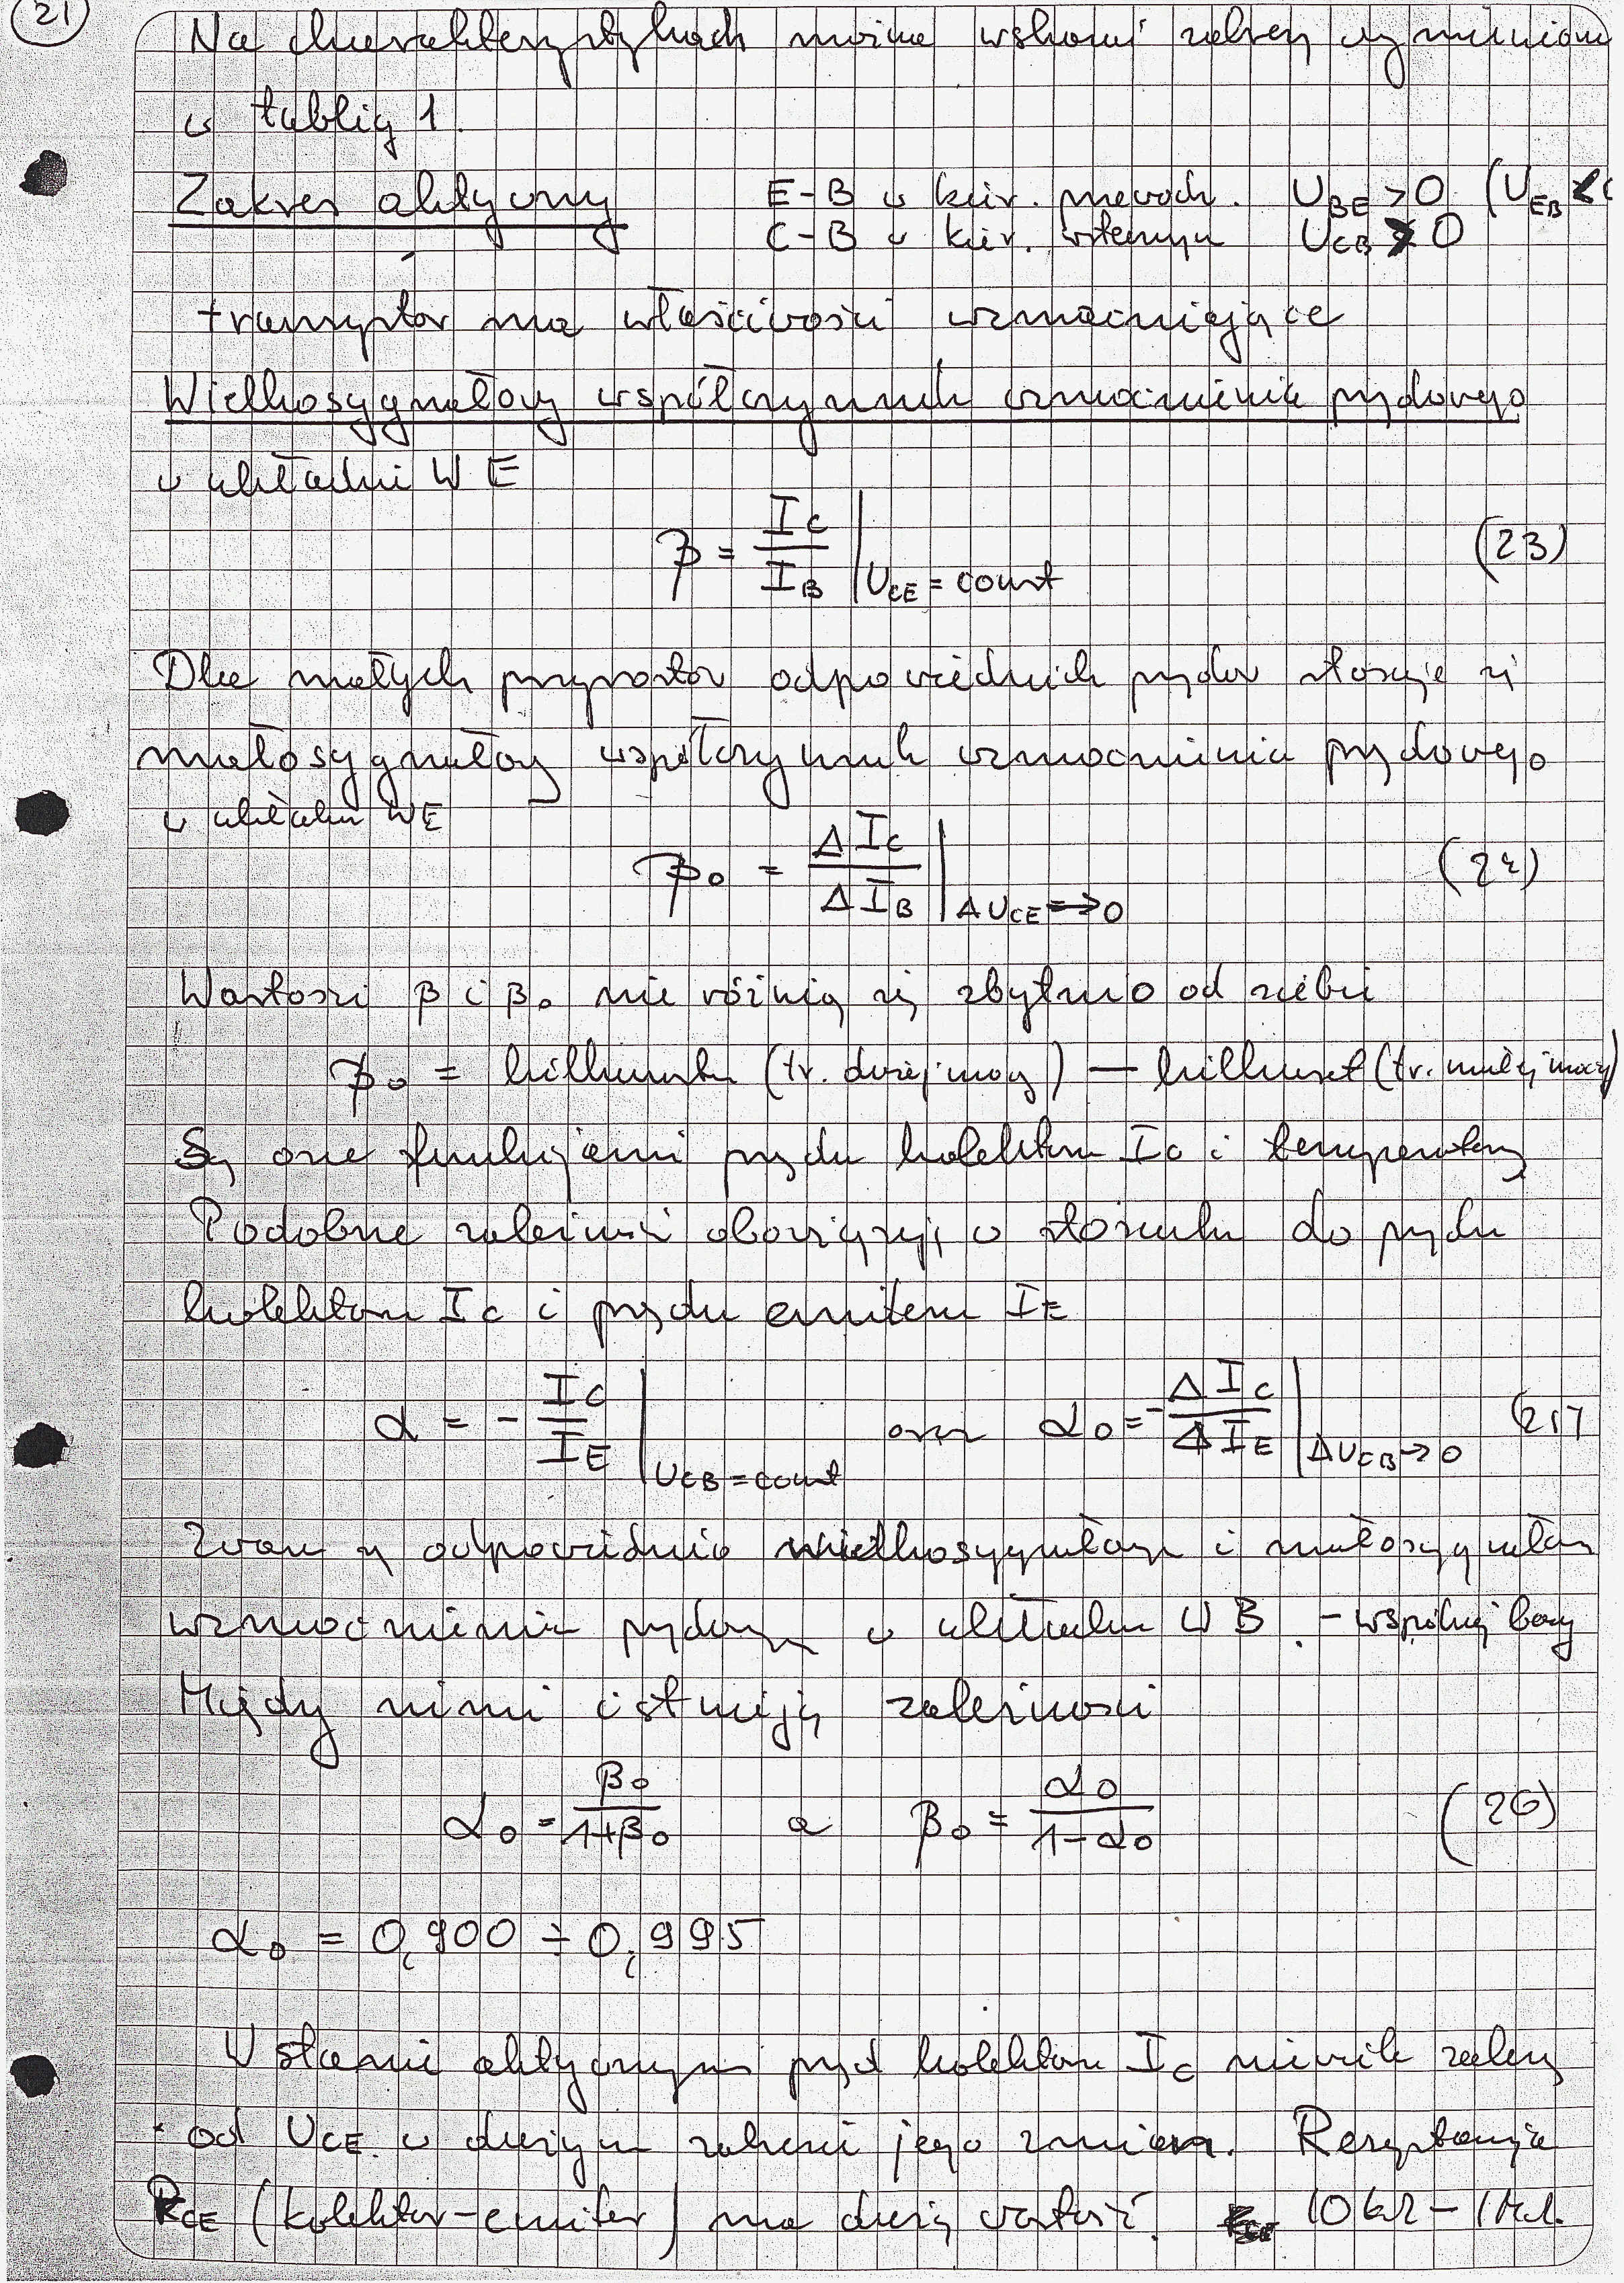 21
Na charakterystykach można wskazać zakresy wymienione
w tablicy 1.
Zakres aktywny E-B w kier. przewodz. U_BE > 0 (U_EB <
C-B w kier. wstecznym U_CB > 0
tranzystor ma właściwości wzmacniające
Wielkosygnałowy współczynnik wzmocnienia prądowego
w układzie WE
β = I_C / I_B | U_CE = const (23)
Dla małych przyrostów odpowiednich prądów stosuje się
małosygnałowy współczynnik wzmocnienia prądowego
w układzie WE
β₀ = Δ I_C / Δ I_B | Δ U_CE → 0 (24)
Wartości β i β₀ nie różnią się zbytnio od siebie
β₀ = kilkanaście (tr. dużej mocy) — kilkuset (tr. małej mocy)
Są one funkcjami prądu kolektora I_C i temperatury
Podobne zależności obowiązują w stosunku do prądu
kolektora I_C i prądu emitera I_E
α = - I_C / I_E | U_CB = const oraz α₀ = - Δ I_C / Δ I_E | Δ U_CB → 0 (25)
Zwane są odpowiednio wielkosygnałowym i małosygnałowym
wzmocnieniem prądowym w układzie WB. - wspólnej bazy
Między nimi istnieją zależności
α₀ = β₀ / 1+β₀ a β₀ = α₀ / 1-α₀ (26)
α₀ = 0,900 ÷ 0,995
W stanie aktywnym prąd kolektora I_C niewiele zależy
od U_CE w dużym zakresie jego zmian. Rezystancja
R_CE (kolektor-emiter) ma dużą wartość. 10 kΩ - 1 MΩ.